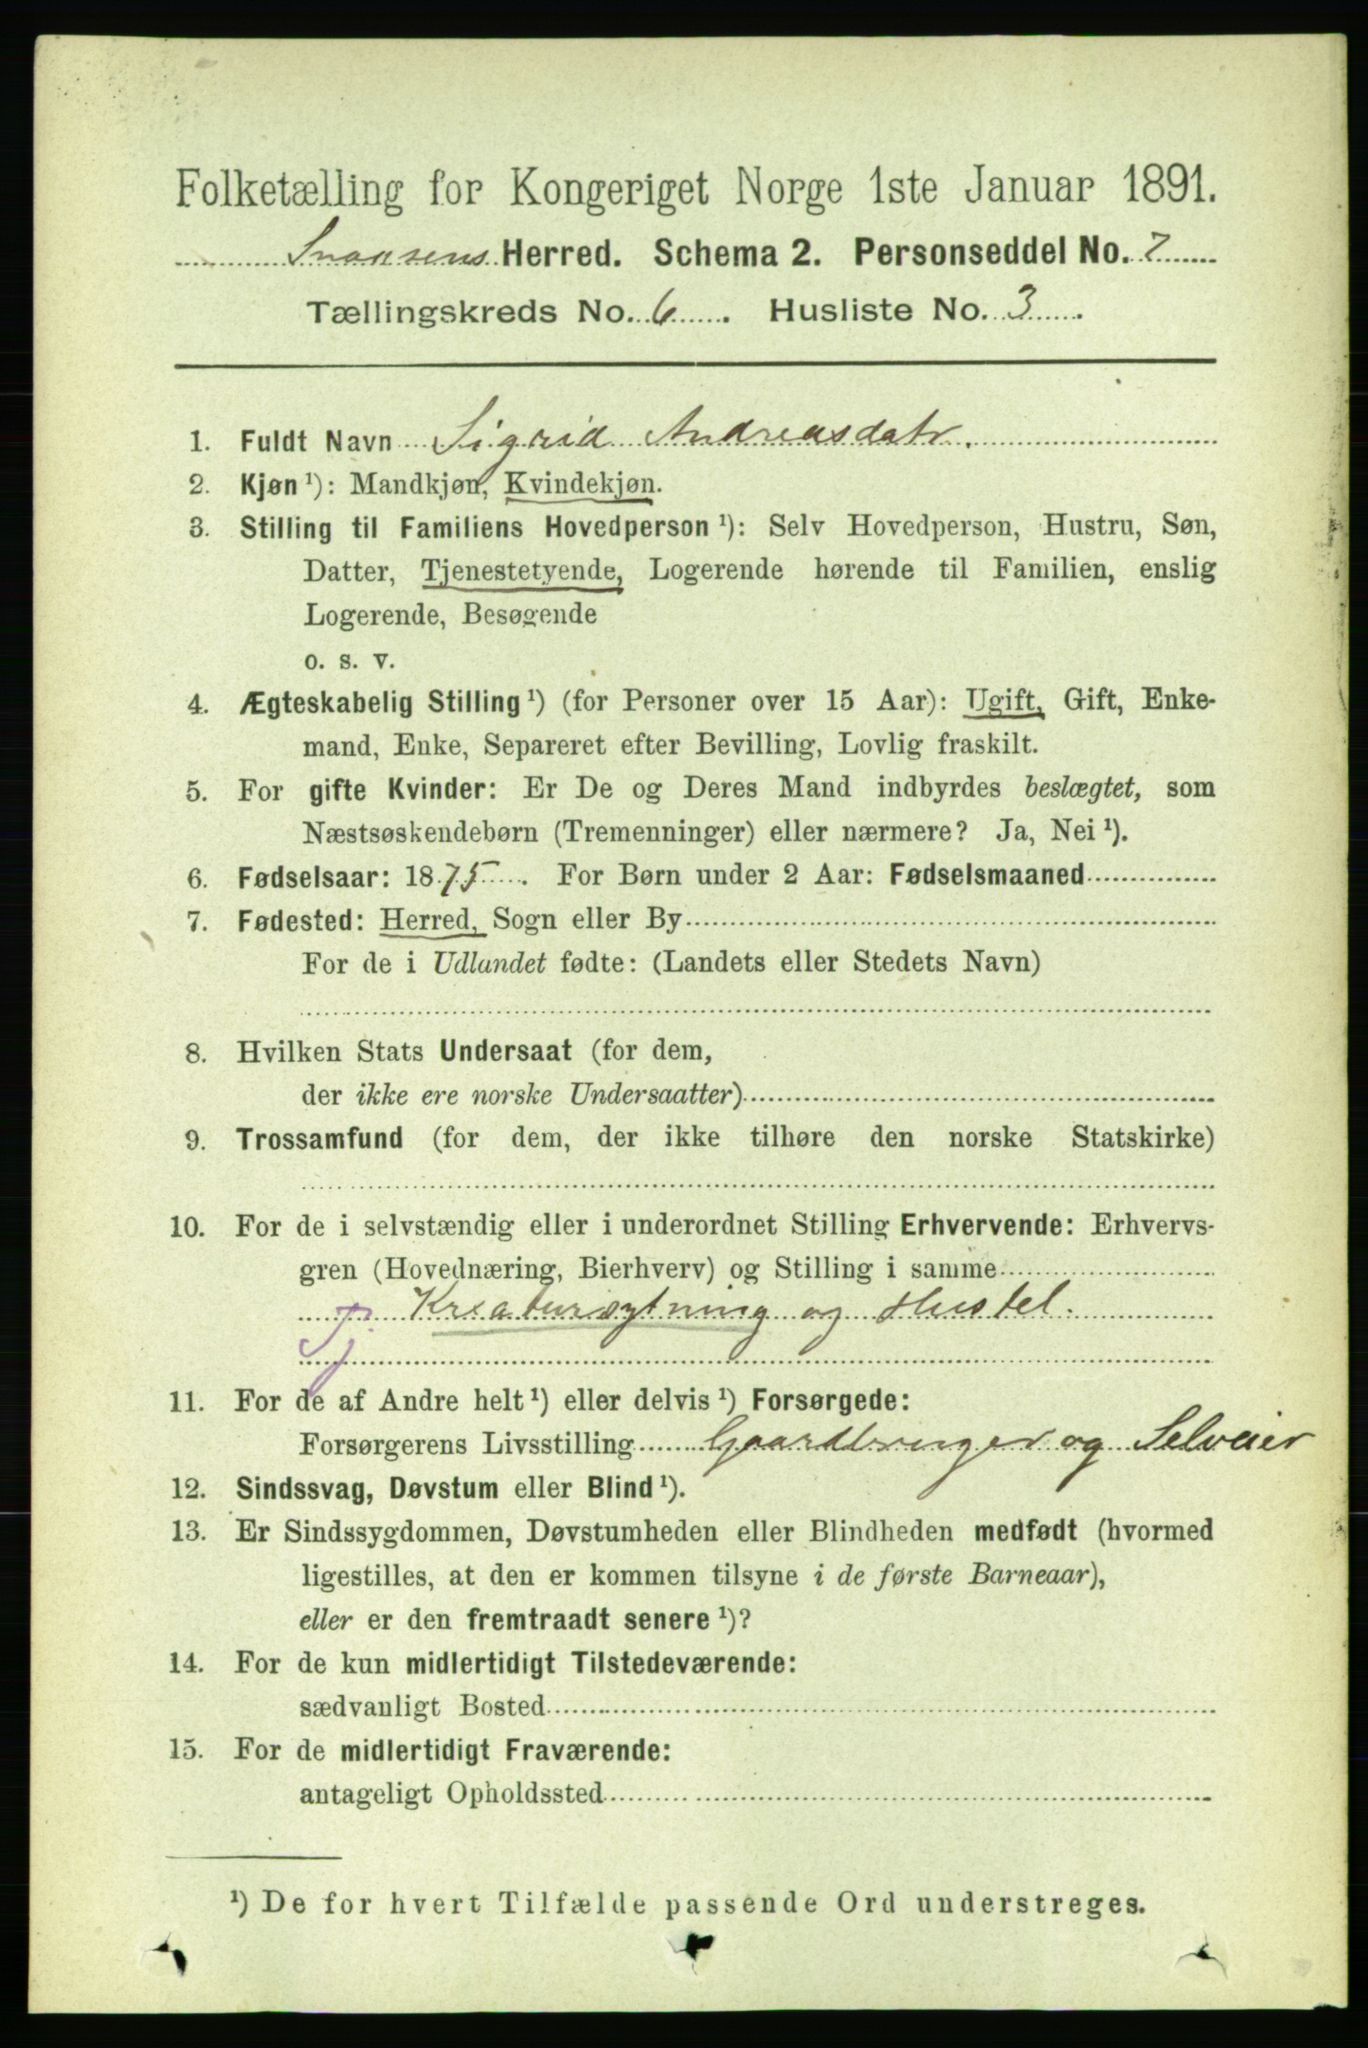 Folketælling for Kongeriget Norge 1ste Januar 1891.
Snaasens Herred. Schema 2. Personseddel No. 7
Tællingskreds No. 6. Husliste No. 3.
1. Fuldt Navn Sigrid Andreasdatr.
2. Kjøn ¹): Mandkjøn, Kvindekjøn.
3. Stilling til Familiens Hovedperson ¹): Selv Hovedperson, Hustru, Søn,
Datter, Tjenestetyende, Logerende hørende til Familien, enslig
Logerende, Besøgende
o. s. v.
4. Ægteskabelig Stilling ¹) (for Personer over 15 Aar): Ugift, Gift, Enke-
mand, Enke, Separeret efter Bevilling, Lovlig fraskilt.
5. For gifte Kvinder: Er De og Deres Mand indbyrdes beslægtet, som
Næstsøskendebørn (Tremenninger) eller nærmere? Ja, Nei ¹).
6. Fødselsaar: 1875. For Børn under 2 Aar: Fødselsmaaned
7. Fødested: Herred, Sogn eller By
For de i Udlandet fødte: (Landets eller Stedets Navn)
8. Hvilken Stats Undersaat (for dem,
der ikke ere norske Undersaatter)
9. Trossamfund (for dem, der ikke tilhøre den norske Statskirke)
10. For de i selvstændig eller i underordnet Stilling Erhvervende: Erhvervs-
gren (Hovednæring, Bierhverv) og Stilling i samme
Tj. Kreaturrøgtning og Hustel.
11. For de af Andre helt ¹) eller delvis ¹) Forsørgede:
Forsørgerens Livsstilling Gaardbruger og Selveier
12. Sindssvag, Døvstum eller Blind ¹).
13. Er Sindssygdommen, Døvstumheden eller Blindheden medfødt (hvormed
ligestilles, at den er kommen tilsyne i de første Barneaar),
eller er den fremtraadt senere ¹)?
14. For de kun midlertidigt Tilstedeværende:
sædvanligt Bosted
15. For de midlertidigt Fraværende:
antageligt Opholdssted
¹) De for hvert Tilfælde passende Ord understreges.